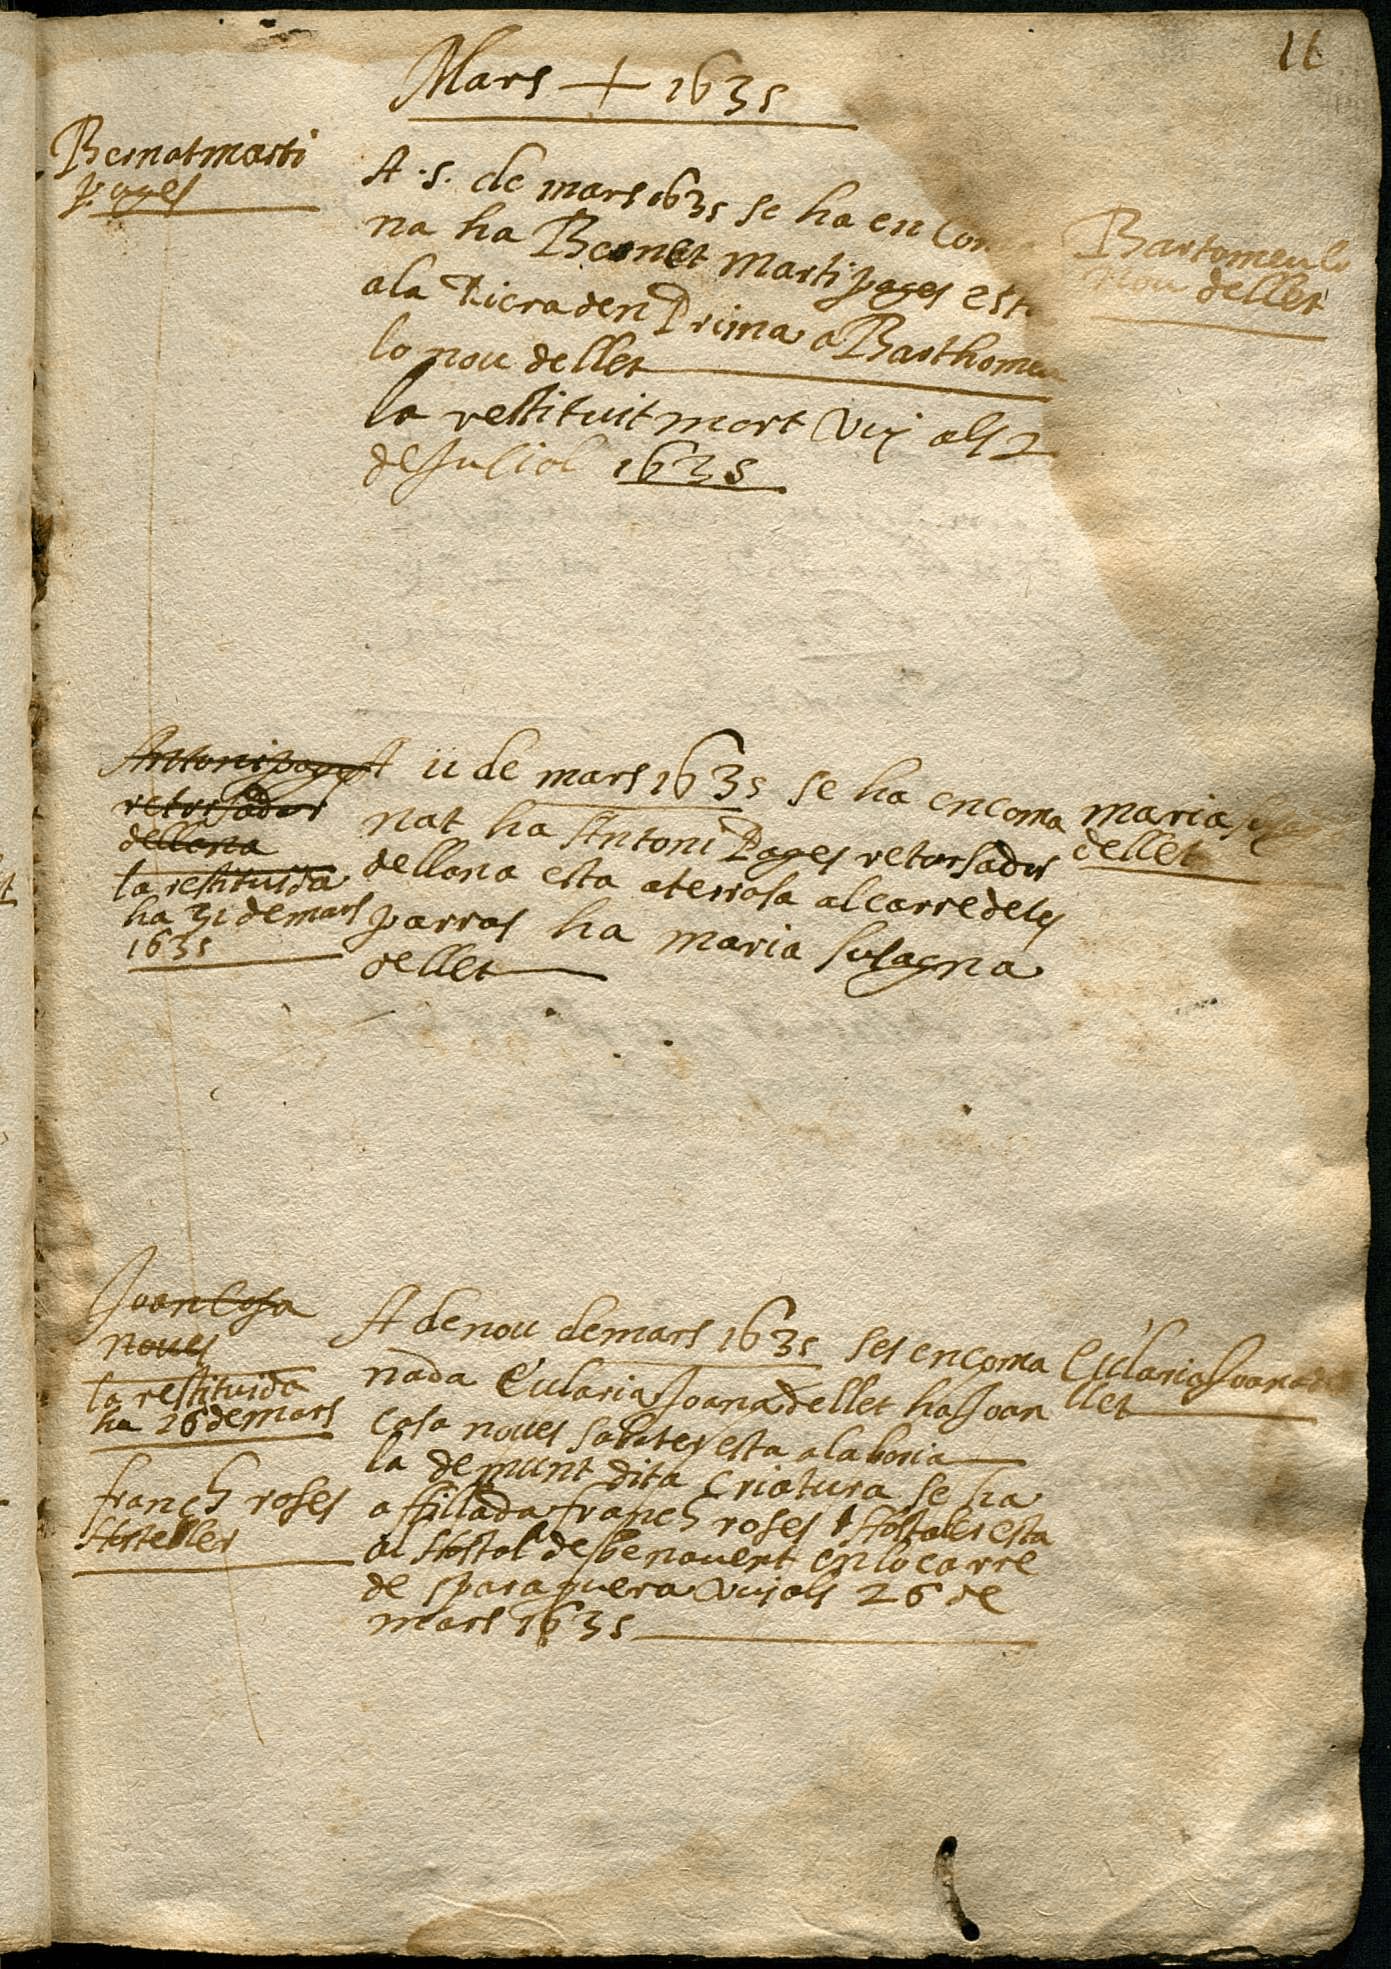 11
Mars + 1635
Bernat marti
pages
A .5. de mars 1635 se ha en Com
na ha Bernat Marti pages esta
a la Riera den Prima a Barthomeu
lo nou de llet
Bartomeu lo
nou de llet
la restituit mort vuy als 2
de Juliol 1635
Antoni pages
retorsador
de llana
la restituida
ha 31 de mars
1635
A 11 de mars 1635 se ha encoma
nat ha Antoni Pages retorsador
de llana esta a terrosa al carre de les
parras ha maria susagna
de llet
maria
de llet
Joan Casa
noues
la restituida
ha 26 de mars
franch roses
Hosteller
A de nou de mars 1635 ses encoma
nada Eularia Joana de llet ha Joan
casa noues sabater esta a la boria
la demunt dita criatura se ha
affillada franch roses Hostaler esta
al Hostal de benauent en lo carre
de sparaguera vuy als 26 de
mars 1635
Eularia Joana de
llet